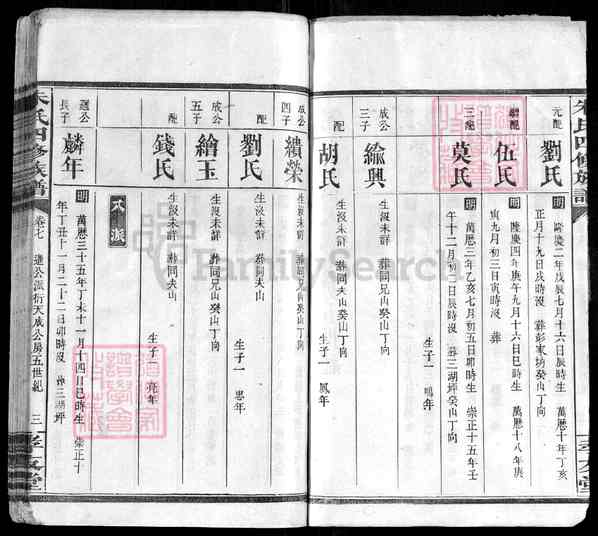 元配
劉氏
明 隆慶二年戊辰七月十六日辰時生 萬厯十年丁亥
正月十九日戌時沒 葬彭家坊癸山丁向
繼配
伍氏
明 隆慶四年庚午九月十六日巳時生 萬厯十八年庚
寅九月初三日寅時沒 葬
三繼
莫氏
明 萬厯三年乙亥七月初五日卯時生 崇正十五年壬
午十二月初二日辰時沒 葬三湖坪癸山丁向
生子一 鳴年
成公三子
綸興
生沒未詳 葬同兄山癸山丁向
配
胡氏
生沒未詳 葬同夫山
生子一 鳳年
成公四子
繢榮
生沒未詳 葬同兄山癸山丁向
配
劉氏
生沒未詳 葬同夫山
生子一 思年
成公五子
繪玉
生沒未詳 葬同兄山癸山丁向
配
錢氏
生沒未詳 葬同夫山
生子一 亮年
不派
選公長子
麟年
明 萬厯三十五年丁未十一月十四日巳時生 崇正十
年丁丑十一月二十二日卯時沒 葬三湖坪
朱氏四修族譜
卷七 選公派衍天成公房五世紀
三
孝友堂
FamilySearch